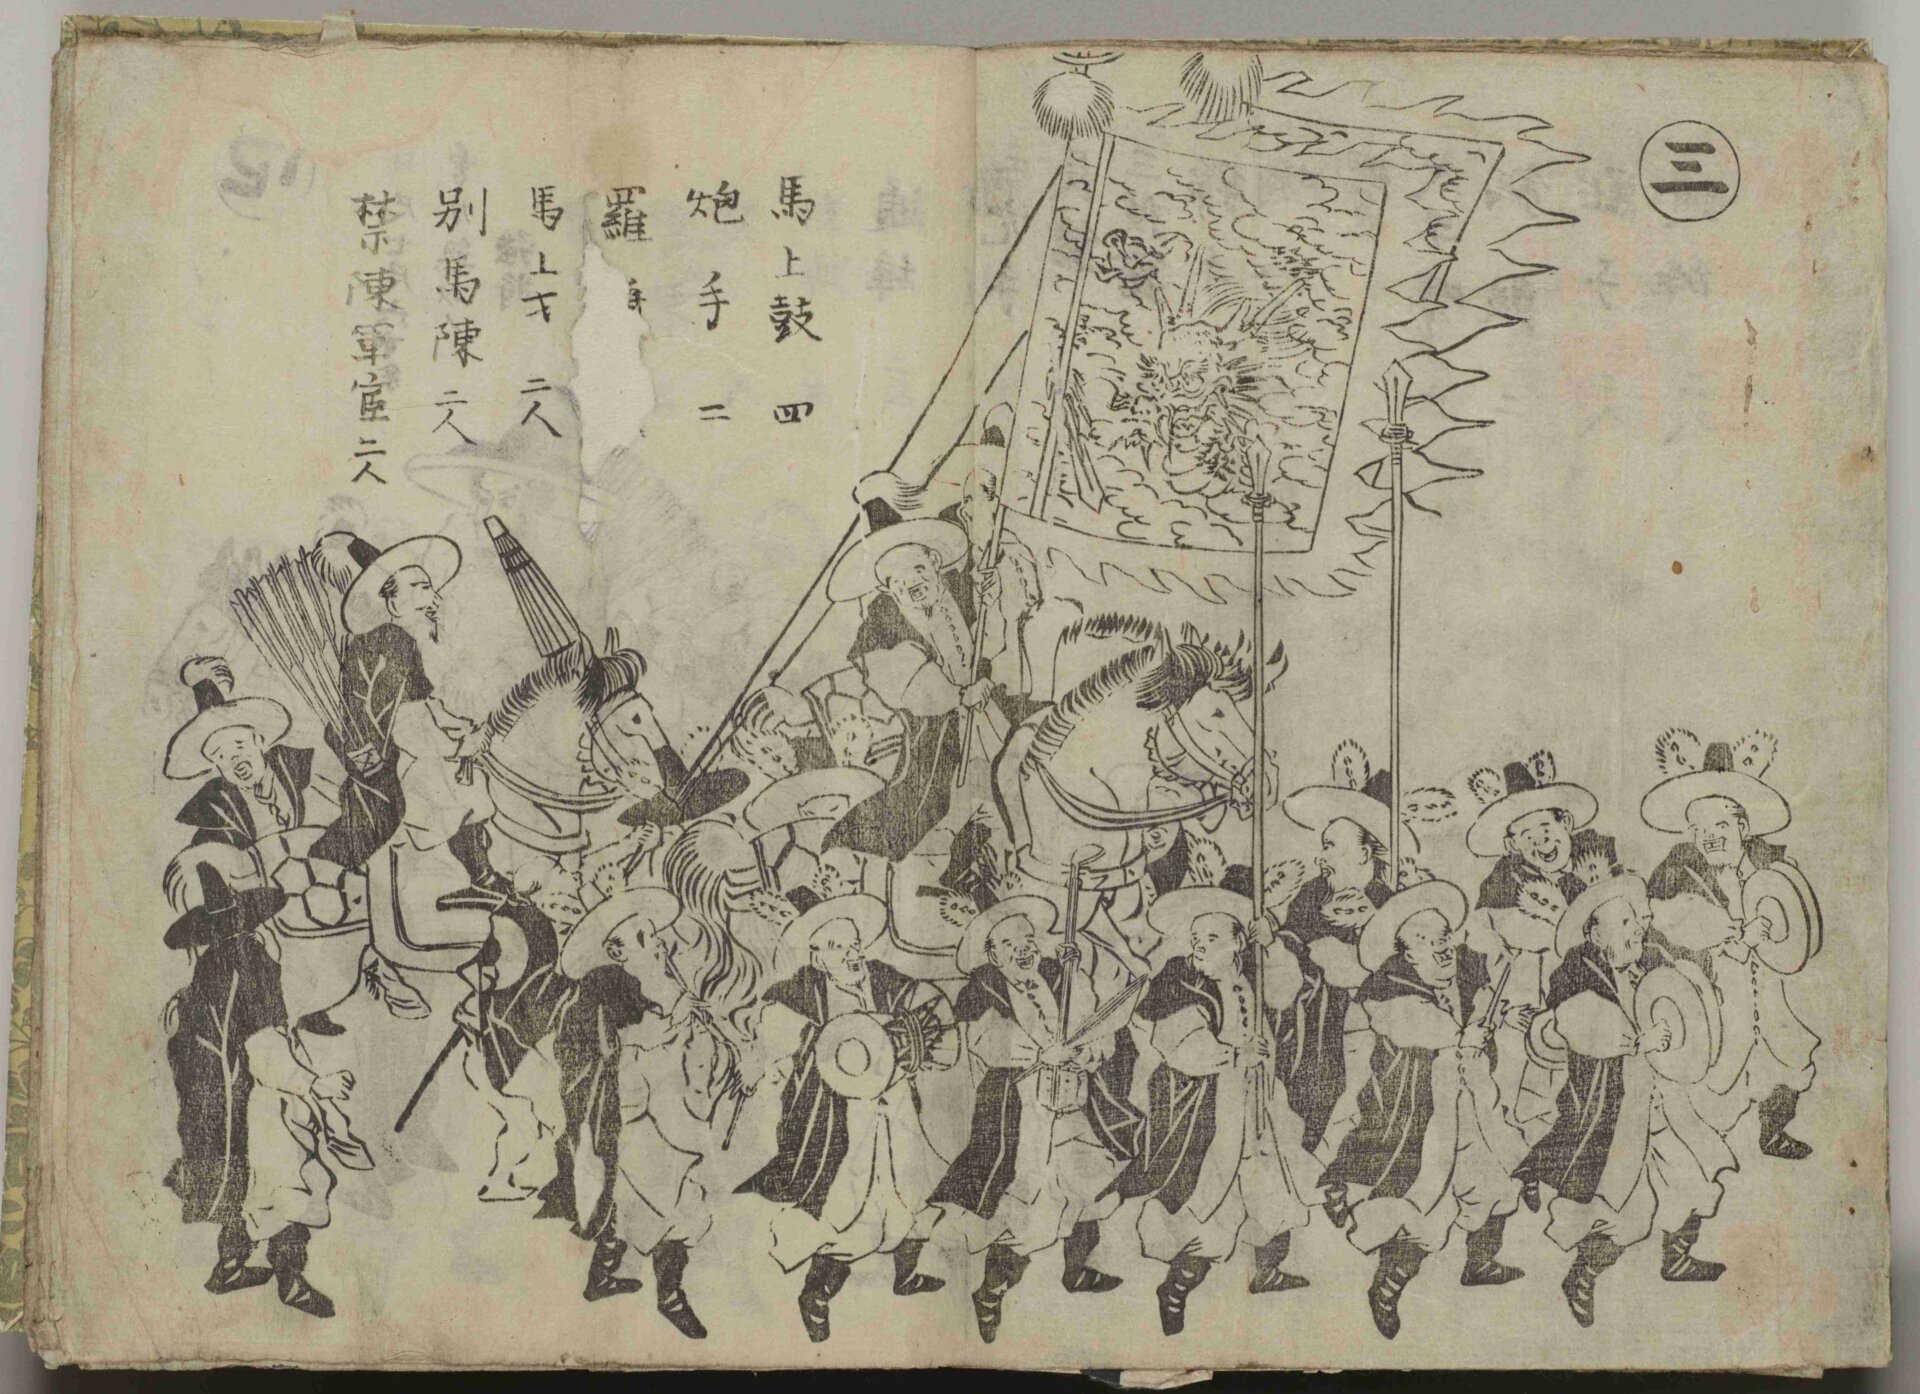 三
馬上鼓 四
炮手 二
羅
馬上才 二人
別馬陳 二人
禁陳軍官 二人